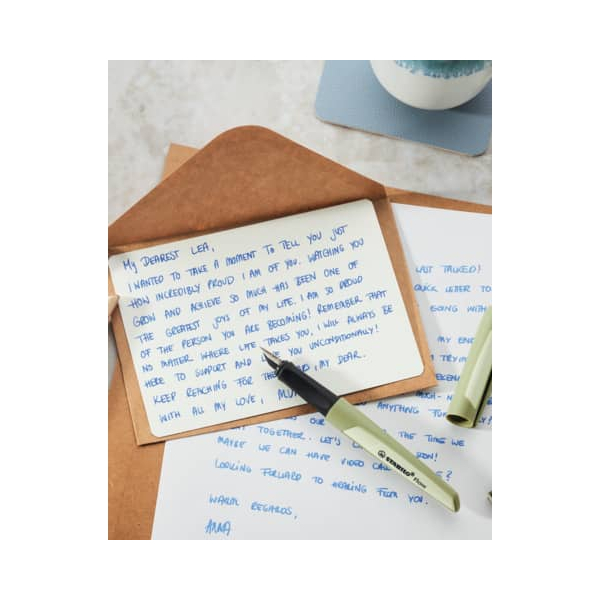 My DEAREST LEA,
I WANTED TO TAKE A MOMENT TO TELL YOU JUST
HOW INCREDIBLY PROUD I AM OF YOU. WATCHING YOU
GROW AND ACHIEVE SO MUCH HAS BEEN ONE OF
THE GREATEST JOYS OF MY LIFE. I AM SO PROUD
OF THE PERSON YOU ARE BECOMING! REMEMBER THAT
NO MATTER WHERE LIFE TAKES YOU, I WILL ALWAYS BE
HERE TO SUPPORT AND YOU UNCONDITIONALLY!
KEEP REACHING FOR THE , MY DEAR.
WITH ALL MY LOVE,
TALKED!
QUICK LETTER TO
GOING WITH
MY
ANYTHING
OUR
TOGETHER. LET'S THE TIME WE
MAYBE WE CAN HAVE VIDEO
LOOKING FORWARD TO HEARING FROM YOU.
WARM REGARDS,
ANNA
STABILO Flow